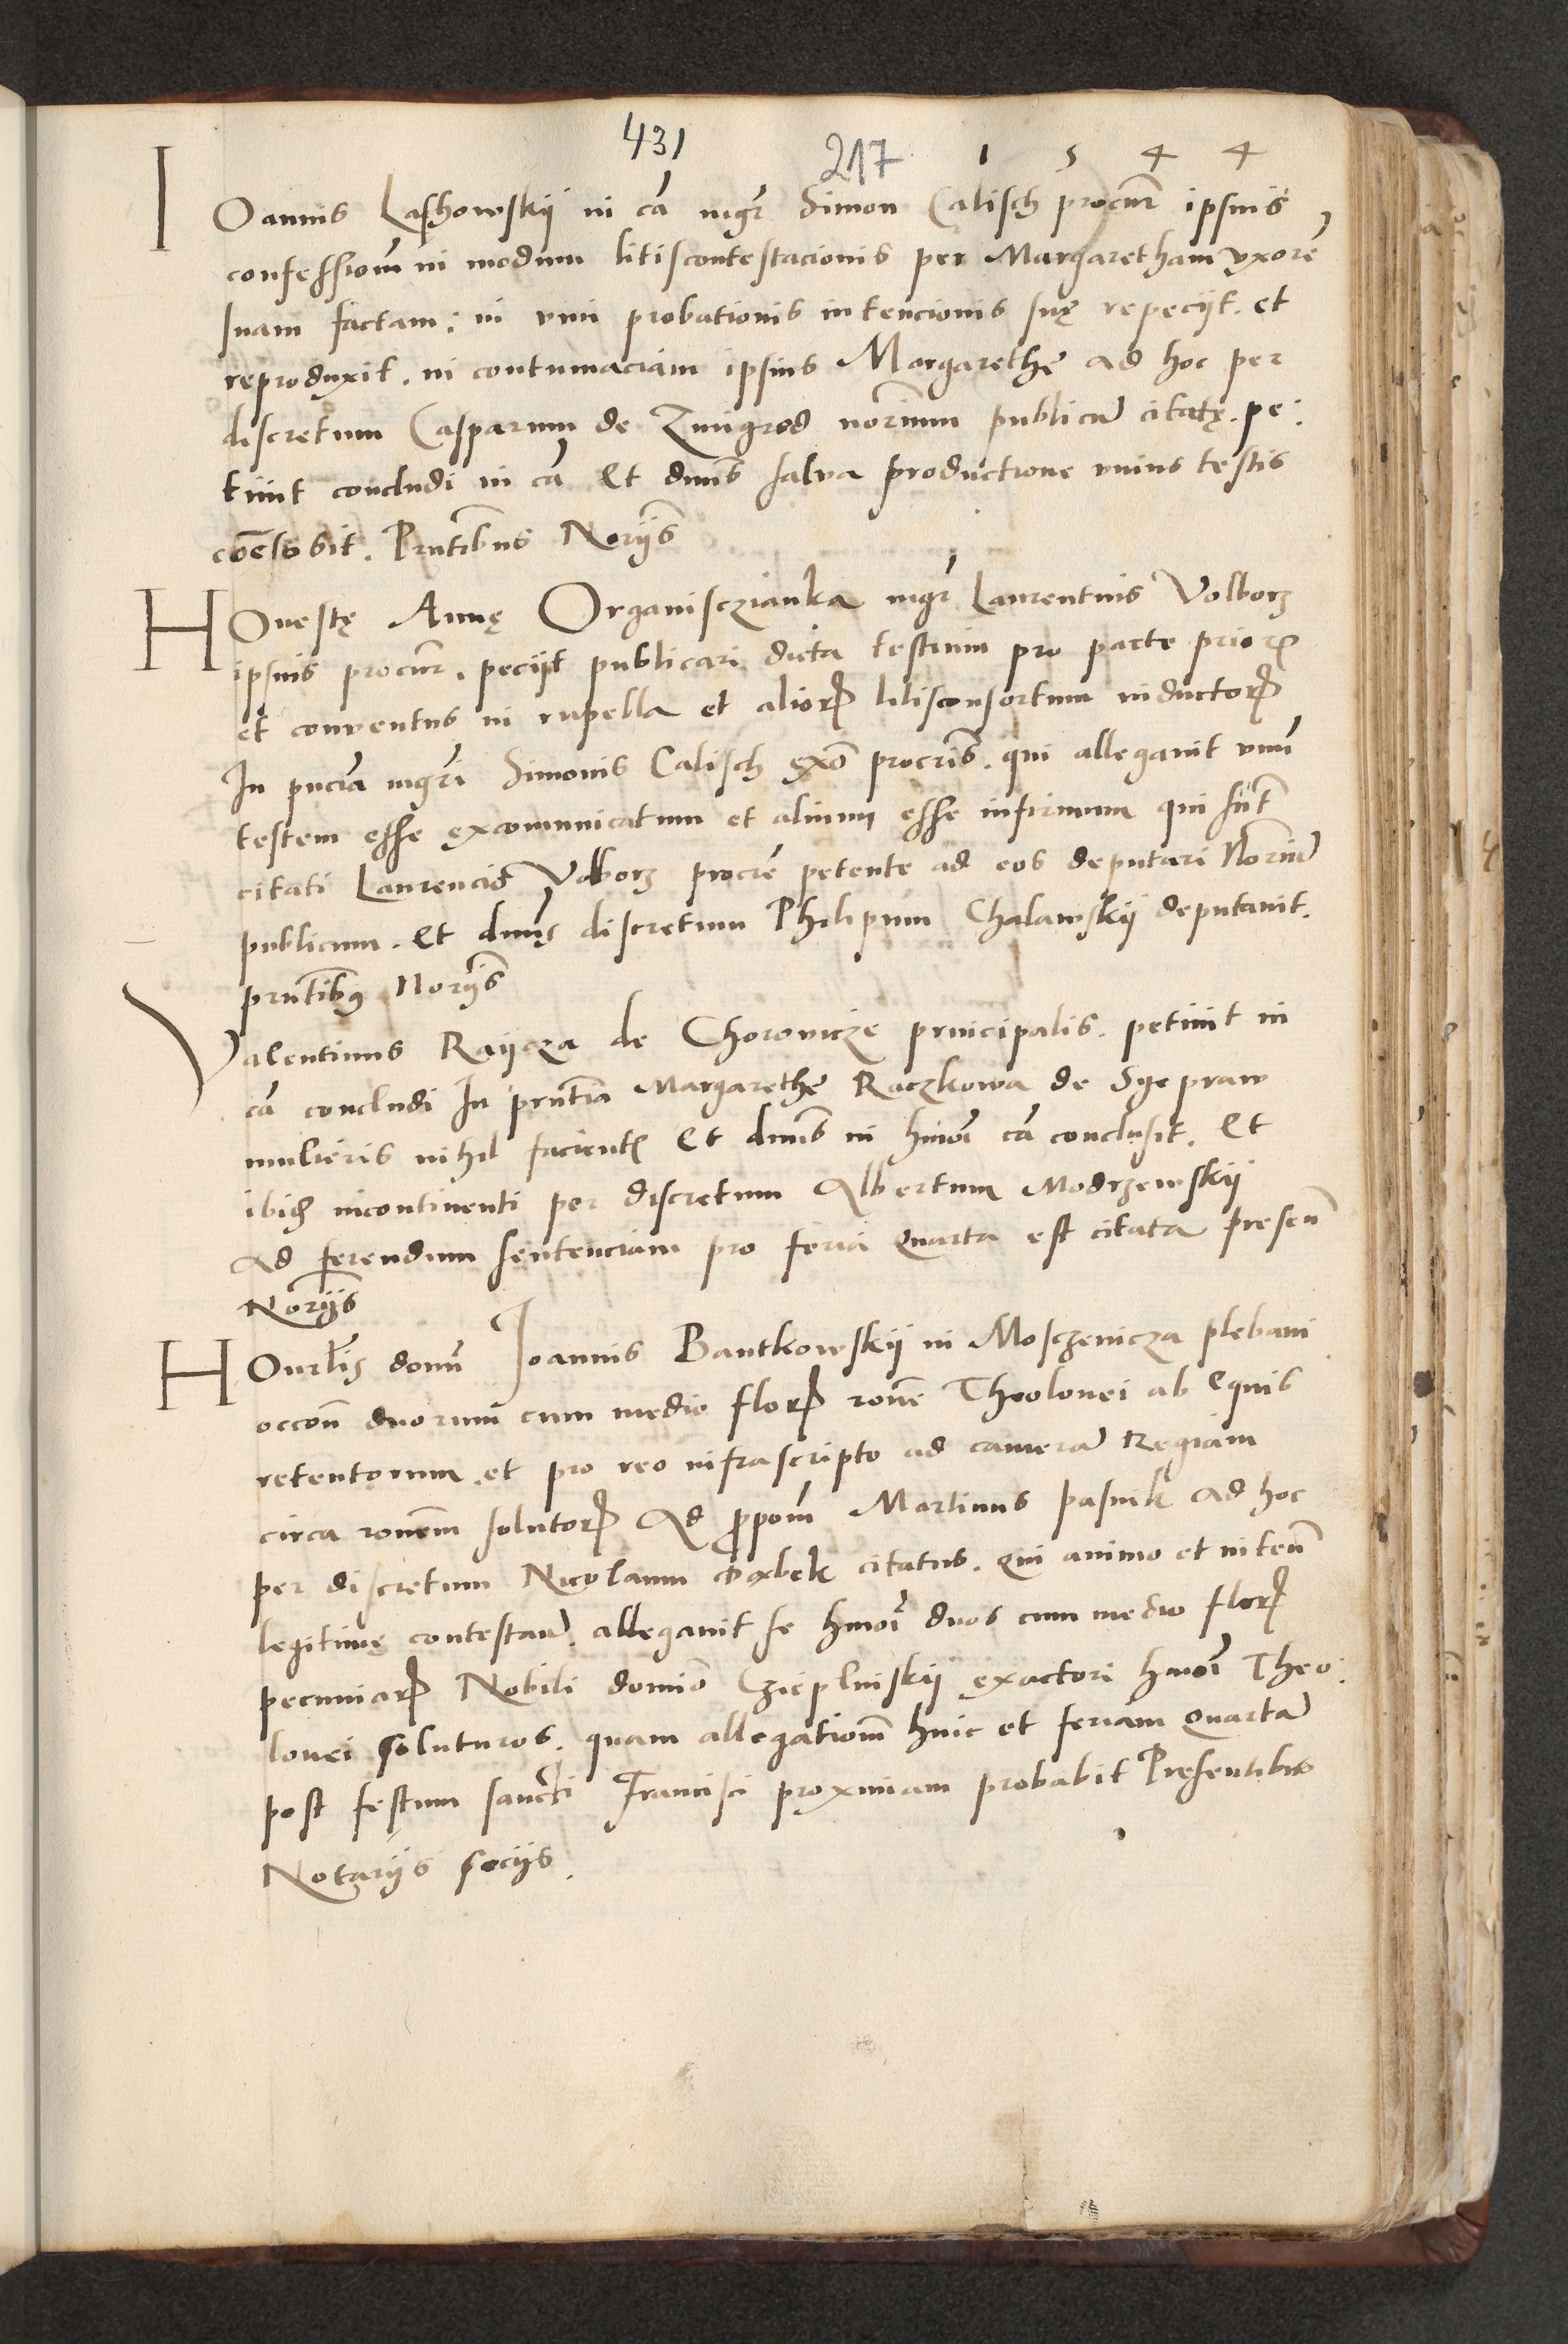 431 217 1 5 4 4
IOannis Laschowskij in cã mgr̃ Simon Calisch procur̃ ipsius
confessiom̃ in modum litiscontestacionis per Margaretham vxorẽ
suam factam: in vim probationis intencionis suę repecijt. et
reproduxit. in contumaciam ipsius Margarethę ad hoc per
discretum Casparum de Zmigrod nõrium publicũ citatę. pe:
tiuit concludi in cã Et dnũs salua productione vnius testis
cõclusit. Prñtibus Norijs̃
HOnestę Annę Organisczianka mgr̃ Laurentius Volborz
ipsius procur̃. pecijt publicari dicta testium pro parte prioris
et conuentus in rupella et alior͂ litisconsortum inductor͂
In pnciã mgrĩ Simonis Calisch exõ procrĩs. qui allegauit vnũ
testem esse excomunicatum et alium esse infirmum qui sũt
citati Laurencio Volborz procrẽ petente ad eos deputari Norium̃
publicum. Et dnũs discretum Philipum Chalawskij deputauit.
prñtibus Norijs̃
Valentinus Raijcza de Chorowicze principalis. petiuit in
cã concludi In prñtia Margarethę Raczkowa de Sgepraw
mulieris nihil facient͂ Et dnũs in hmoĩ cã conclusit. Et
ibid͂ incontinenti per discretum Albertum Modrzewskij
Ad ferendum sentenciam pro feria quarta est citata presen͂
Norijs̃
HOnrl̃is domñ Ioannis Bantkowskij in Mosczenicza plebani
occoñe duorum cum medio flor͂ rõne Theolonei ab Equis
retentorum. et pro reo infrascripto ad camerã Regiam
circa ronẽm solutor͂ Ad ppom̃ Martinus pasnik ad hoc
per discretum Nicolaum Oxbek citatus. qui animo et inteñ
legitimę contestan͂. allegauit se hmoĩ duos cum medio flor͂
pecuniar͂ Nobili domiõ Czieplinskij exactori hmoĩ Theo:
lonei soluturos. quam allegatiom̃ hinc et feriam quartã
post festum sancti Francisci proximam probabit Presentibus
Notarijs socijs.